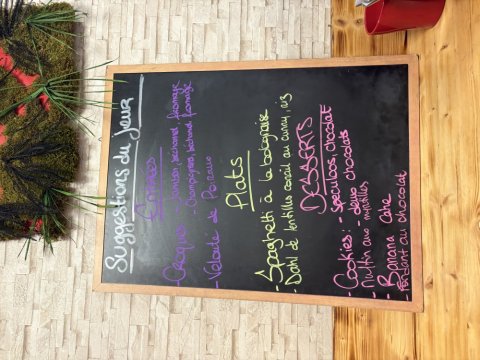 Suggestions du jour
Entrées
- Croque: - Jambon béchamel fromage
- Champignons, béchamel fromage
- Velouté de Poireaux
Plats
- Spaghetti à la bolognaise
- Dahl de lentilles corail au curry, riz
DESSERTS
- Cookies: - Speculoos, chocolat
- deux chocolats
- Muffin aux myrtilles
- Banana cake
- Fondant au chocolat